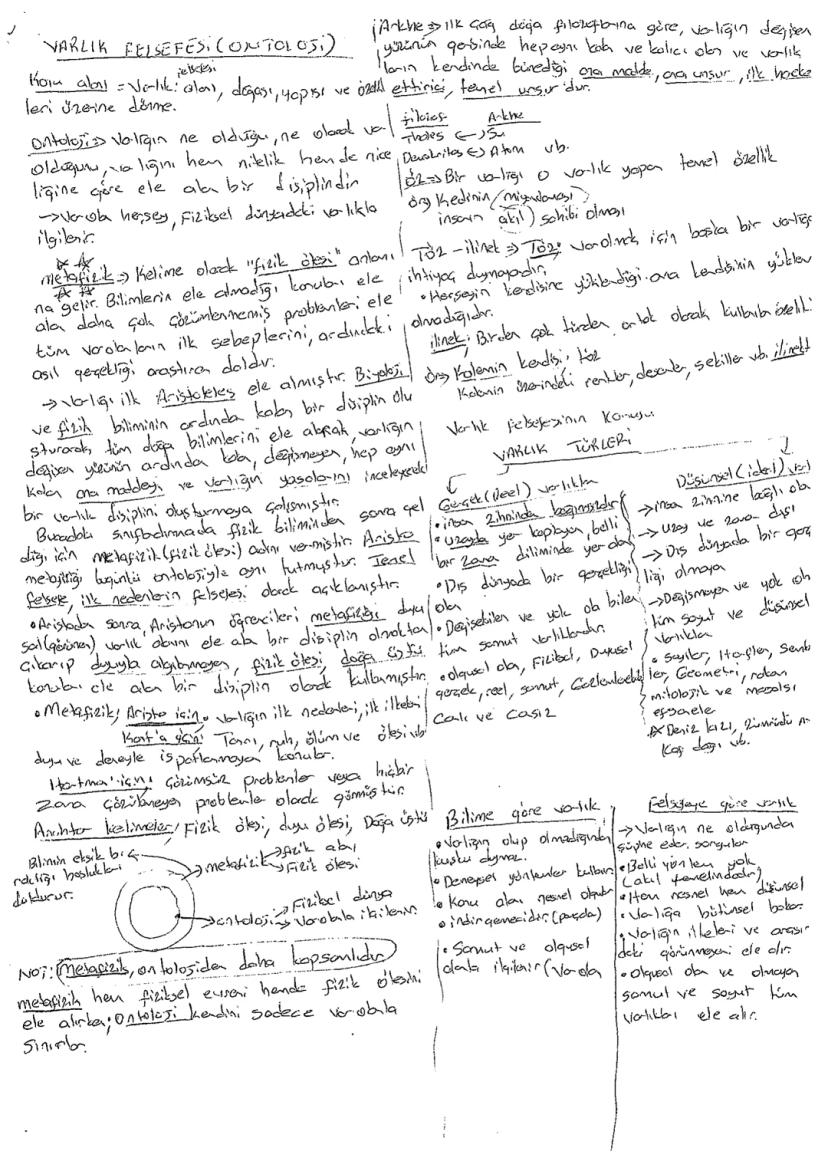 VARLIK FELSEFESİ (ONTOLOJİ)
felsefesi
Konu alanı = Varlık: alanı, doğası, yapısı ve özellik
leri üzerine dünme.
Ontoloji => Varlığın ne olduğu, ne olarak var
olduğunu, varlığını hem nitelik hem de nice
liğine göre ele alan bir disiplindir
→ Varolan herşey, Fiziksel dünyadeki varlıkla
ilgilenir.
metafizik => Kelime olarak "fizik ötesi" anlamı
na gelir. Bilimlerin ele almadığı konuları ele
alan daha çok çözümlenmemiş problemleri ele
tüm varolanların ilk sebeplerini, ardındaki
asıl gerçekliği araştıran daldır.
→ Varlığı ilk Aristoteles ele almıştır. Biyoloji
ve fizik biliminin ardında kalan bir disiplin olu
şturarak, tüm doğa bilimlerini ele alarak, varlığın
değişen yüzünün ardında kalan, değişmeyen, hep aynı
kalan ana maddeyi ve varlığın yasalarını inceleyerek
bir varlık disiplini oluşturmaya çalışmıştır.
Buradaki sınıflandırmada fizik biliminden sonra gel
diği için metafizik (fizik ötesi) adını vermiştir. Aristo
metafiziği bugünkü ontolojiyle aynı tutmuştur. Temel
felsefe, ilk nedenlerin felsefesi olarak açıklanıştır.
• Aristodan sonra, Ariston'un öğrencileri metafiziği duyu
sal (görünen) varlık alanını ele alan bir disiplin olmaktan
çıkarıp duyuyla algılanmayan, fizik ötesi, doğa üstü
konuları ele alan bir disiplin olarak kullanmıştır.
• Metafizik; Aristo için • Varlığın ilk nedenleri, ilk ilkeleri
Kant'a için: Tanrı, ruh, ölüm ve ötesi vb
duyu ve deneyle ispatlanmayan konular.
Hartman için; Çözümsüz problemler veya hiçbir
zaman çözülemeyen problemler olarak görmüştür.
Anahtar kelimeler; Fizik ötesi, duyu ötesi, Doğa üstü
Bilimin eksik bıra
ktığı boşlukları
doldurur.
→ metafizik → fizik alanı
→ Fizik ötesi
→ ontoloji → Fiziksel dünya
→ Varolanla ilgilenir.
NOT: Metafizik, ontolojiden daha kapsamlıdır
metafizik hem fiziksel evreni hemde fizik ötesini
ele alırken; Ontoloji kendini sadece varolanla
sınırlar.
Arkhe => İlk Çağ doğa filozoflarına göre, varlığın değişen
yüzünün gerisinde hep aynı kalan ve kalıcı olan ve varlık
ların kendinde türediği ana madde, ana unsur, ilk hareke
ettirici, temel unsur'dur.
filozof Arkhe
Thales <-> Su
Demokritos <-> Atom vb.
ÖZ => Bir varlığı o varlık yapan temel özellik
Örn Kedinin (miyavlaması)
insanın (akıl) sahibi olması
TÖZ – ilinek => TÖZ: Varolmak için başka bir varlığa
ihtiyaç duymayandır.
• Herşeyin kendisine yüklendiği ama kendisinin yüklen
olmadığıdır.
ilinek: Birden çok türden ortak olarak kullanılan özellik
Örn Kalemin kendisi: töz
Kalemin üzerindeki renkler, desenler, şekiller vb. ilinekt
Varlık Felsefesinin Konusu
VARLIK TÜRLERİ
Gerçek (Reel) varlıkla
• insan zihninden bağımsızdır
• Uzayda yer kaplayan, belli
bir zaman diliminde yer alan
• Dış dünyada bir gerçekliği
olan
• Değişebilen ve yok olabilen
tüm somut varlıklardır.
• olgusal olan, Fiziksel, Duyusal
gerçek, reel, somut, Gözlenebilir
Canlı ve Cansız
Düşünsel (ideal) varl
→ insan zihnine bağlı ola
→ uzay ve zaman dışı
→ Dış dünyada bir gerç
liği olmayan
→ Değişmeyen ve yok olm
tüm soyut ve düşünsel
varlıklar
• Sayılar, Harfler, Semb
ler, Geometri, roman
mitolojik ve masalsı
efsaneler
Deniz kızı, Zümrüdü A-
Kaf dağı vb.
Bilime göre varlık
• Varlığın olup olmadığından
kuşku duymaz.
• Deneysel yöntemler kullanır
• Konu alanı nesnel olandır
• indirgemecidir (parçalar)
• Somut ve olgusal
olanla ilgilenir (Varolan
Felsefeye göre varlık
→ Varlığın ne olduğundan
şüphe eder, sorgular
• Belli yöntem yok
(akıl temelindedir)
• Hem nesnel hem düşünsel
• Varlığa bütünsel bakar.
• Varlığın ilkeleri ve arasın
deki görünmeyeni ele alır.
• Olgusal olan ve olmayan
somut ve soyut tüm
varlıkları ele alır.